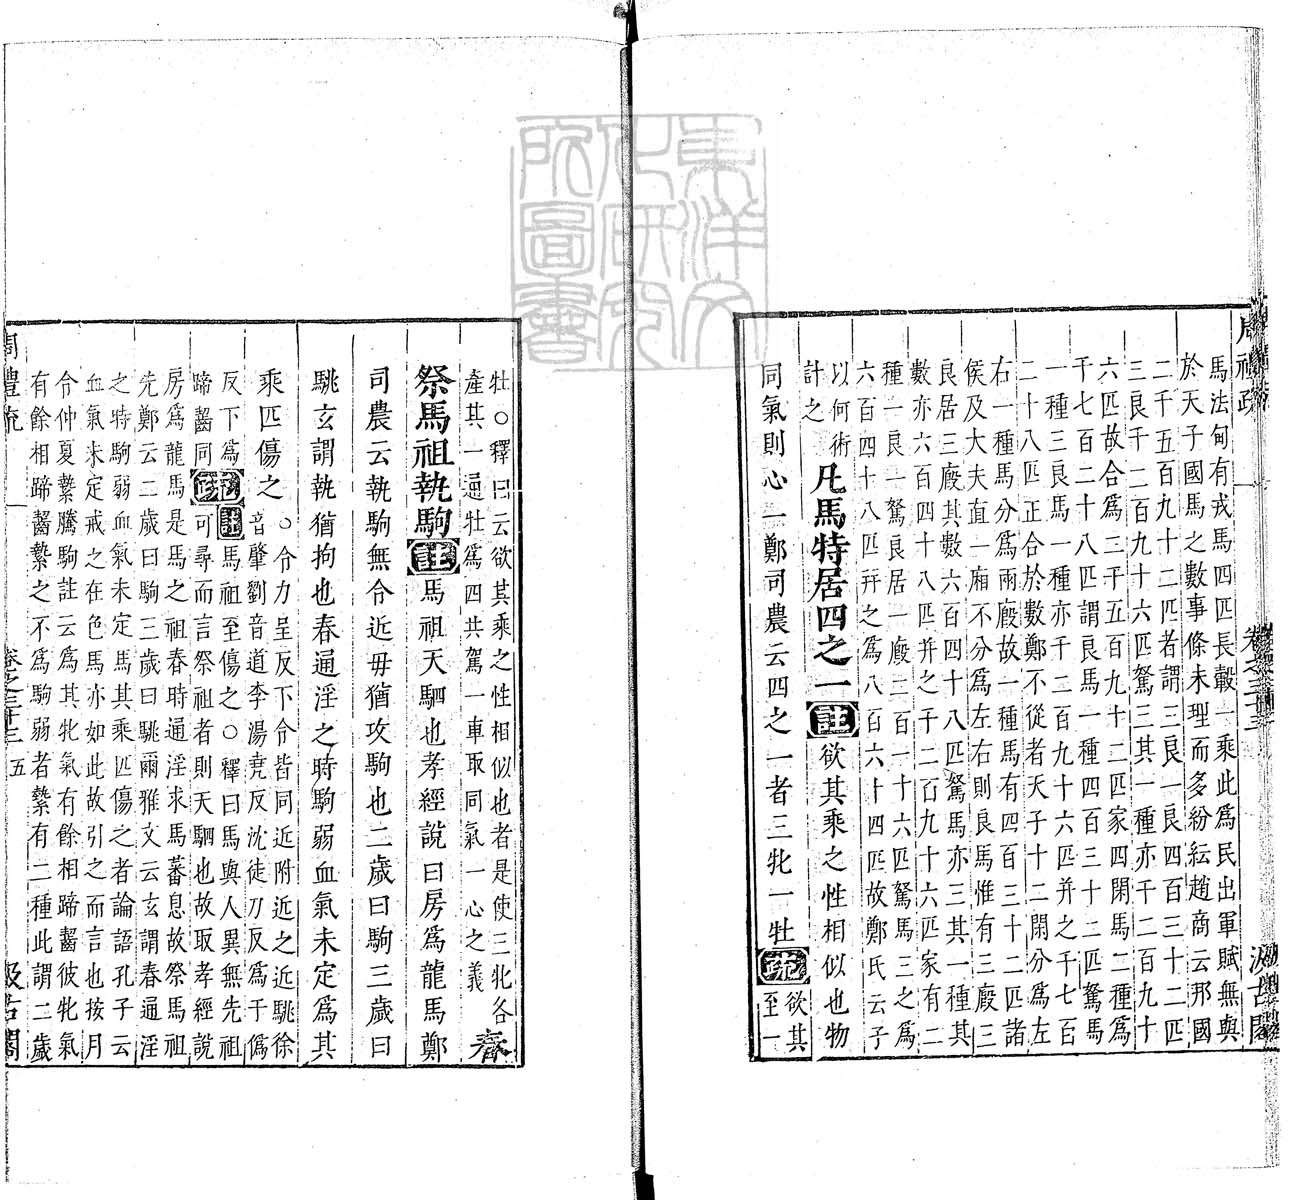 周禮疏
卷之三十三
汲古閣
馬法甸有戎馬四匹長轂一乘此爲民出軍賦無與
於天子國馬之數事條未理而多紛紜趙商云那國
二千五百九十二匹者謂三良一良四百三十二匹
三良千二百九十六匹駑三其一種亦千二百九十
六匹故合爲三千五百九十二匹家四閑馬二種爲
千七百二十八匹謂良馬一種四百三十二匹駑馬
一種三良馬一種亦千二百九十六匹并之千七百
二十八匹正合於數鄭不從者天子十二閑分爲左
右一種馬分爲兩廄故一種馬有四百三十二匹諸
侯及大夫直一廂不分爲左右則良馬惟有三廄三
良居三廄其數六百四十八匹駑馬亦三其一種其
數亦六百四十八匹并之千二百九十六匹家有二
種一良一駑良居一廄二百一十六匹駑馬三之爲
六百四十八匹并之爲八百六十四匹故鄭氏云子
以何術
計之
凡馬特居四之一註欲其乘之性相似也物
同氣則心一鄭司農云四之一者三牝一牡疏欲其
至一
牡○釋曰云欲其乘之性相似也者是使三牝各
產其一通牡爲四共駕一車取同氣一心之義
春
祭馬祖執駒註馬祖天駟也孝經說曰房爲龍馬鄭
司農云執駒無令近毋猶攻駒也二歲曰駒三歲曰
駣玄謂執猶拘也春通淫之時駒弱血氣未定爲其
乘匹傷之○令力呈反下令皆同近附近之近駣徐
音肇劉音道李湯堯反沈徒刀反爲于僞
反下爲
蹄齧同疏註馬祖至傷之○釋曰馬與人異無先祖
可尋而言祭祖者則天駟也故取孝經說
房爲龍馬是馬之祖春時通淫求馬蕃息故祭馬祖
先鄭云二歲曰駒三歲曰駣爾雅文云玄謂春通淫
之特駒弱血氣未定爲其乘匹傷之者論語孔子云
血氣未定戒之在色馬亦如此故引之而言也按月
令仲夏縶騰駒註云爲其牝氣有餘相蹄齧彼牝氣
有餘相蹄齧縶之不爲駒弱者縶有二種此謂二歲
周禮疏
卷之三十三
五
汲古閣